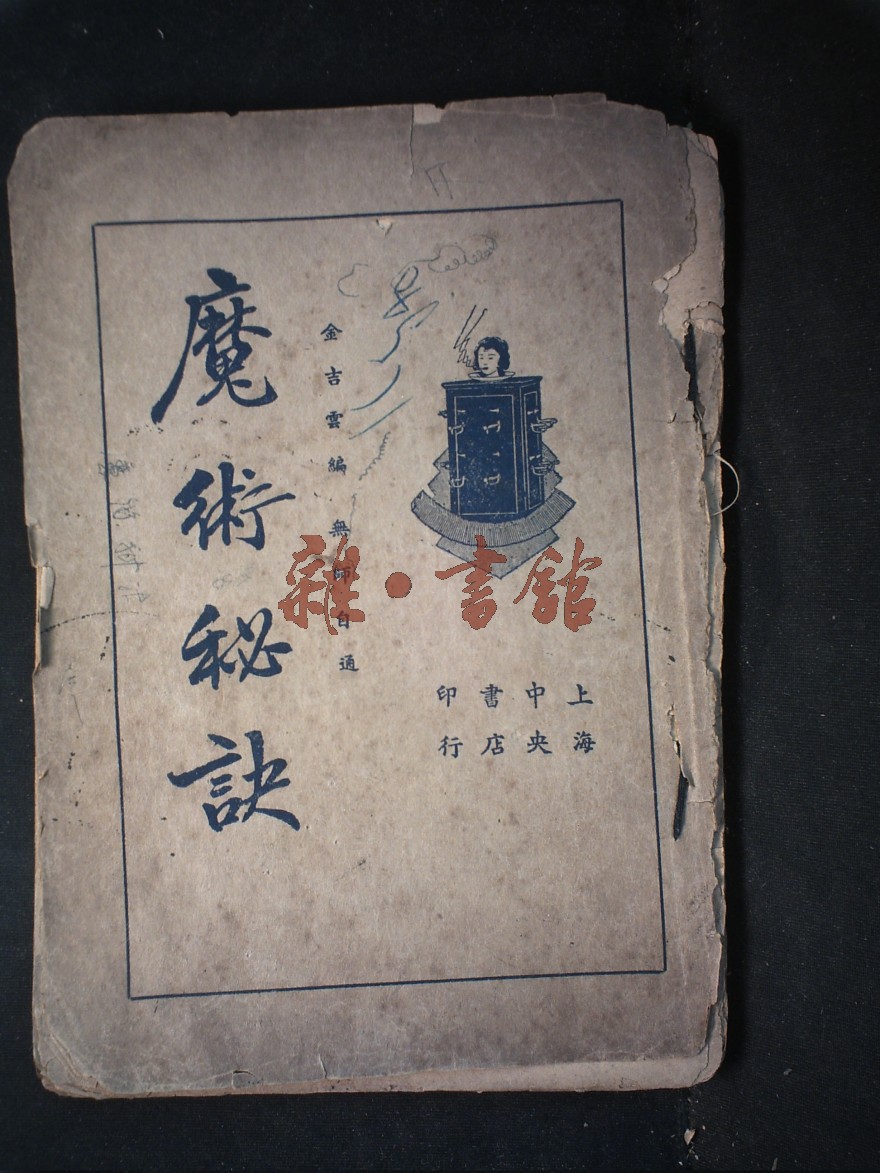 上海
中央
書店
印行
金吉雲編 無師自通
魔術秘訣
雜·書館